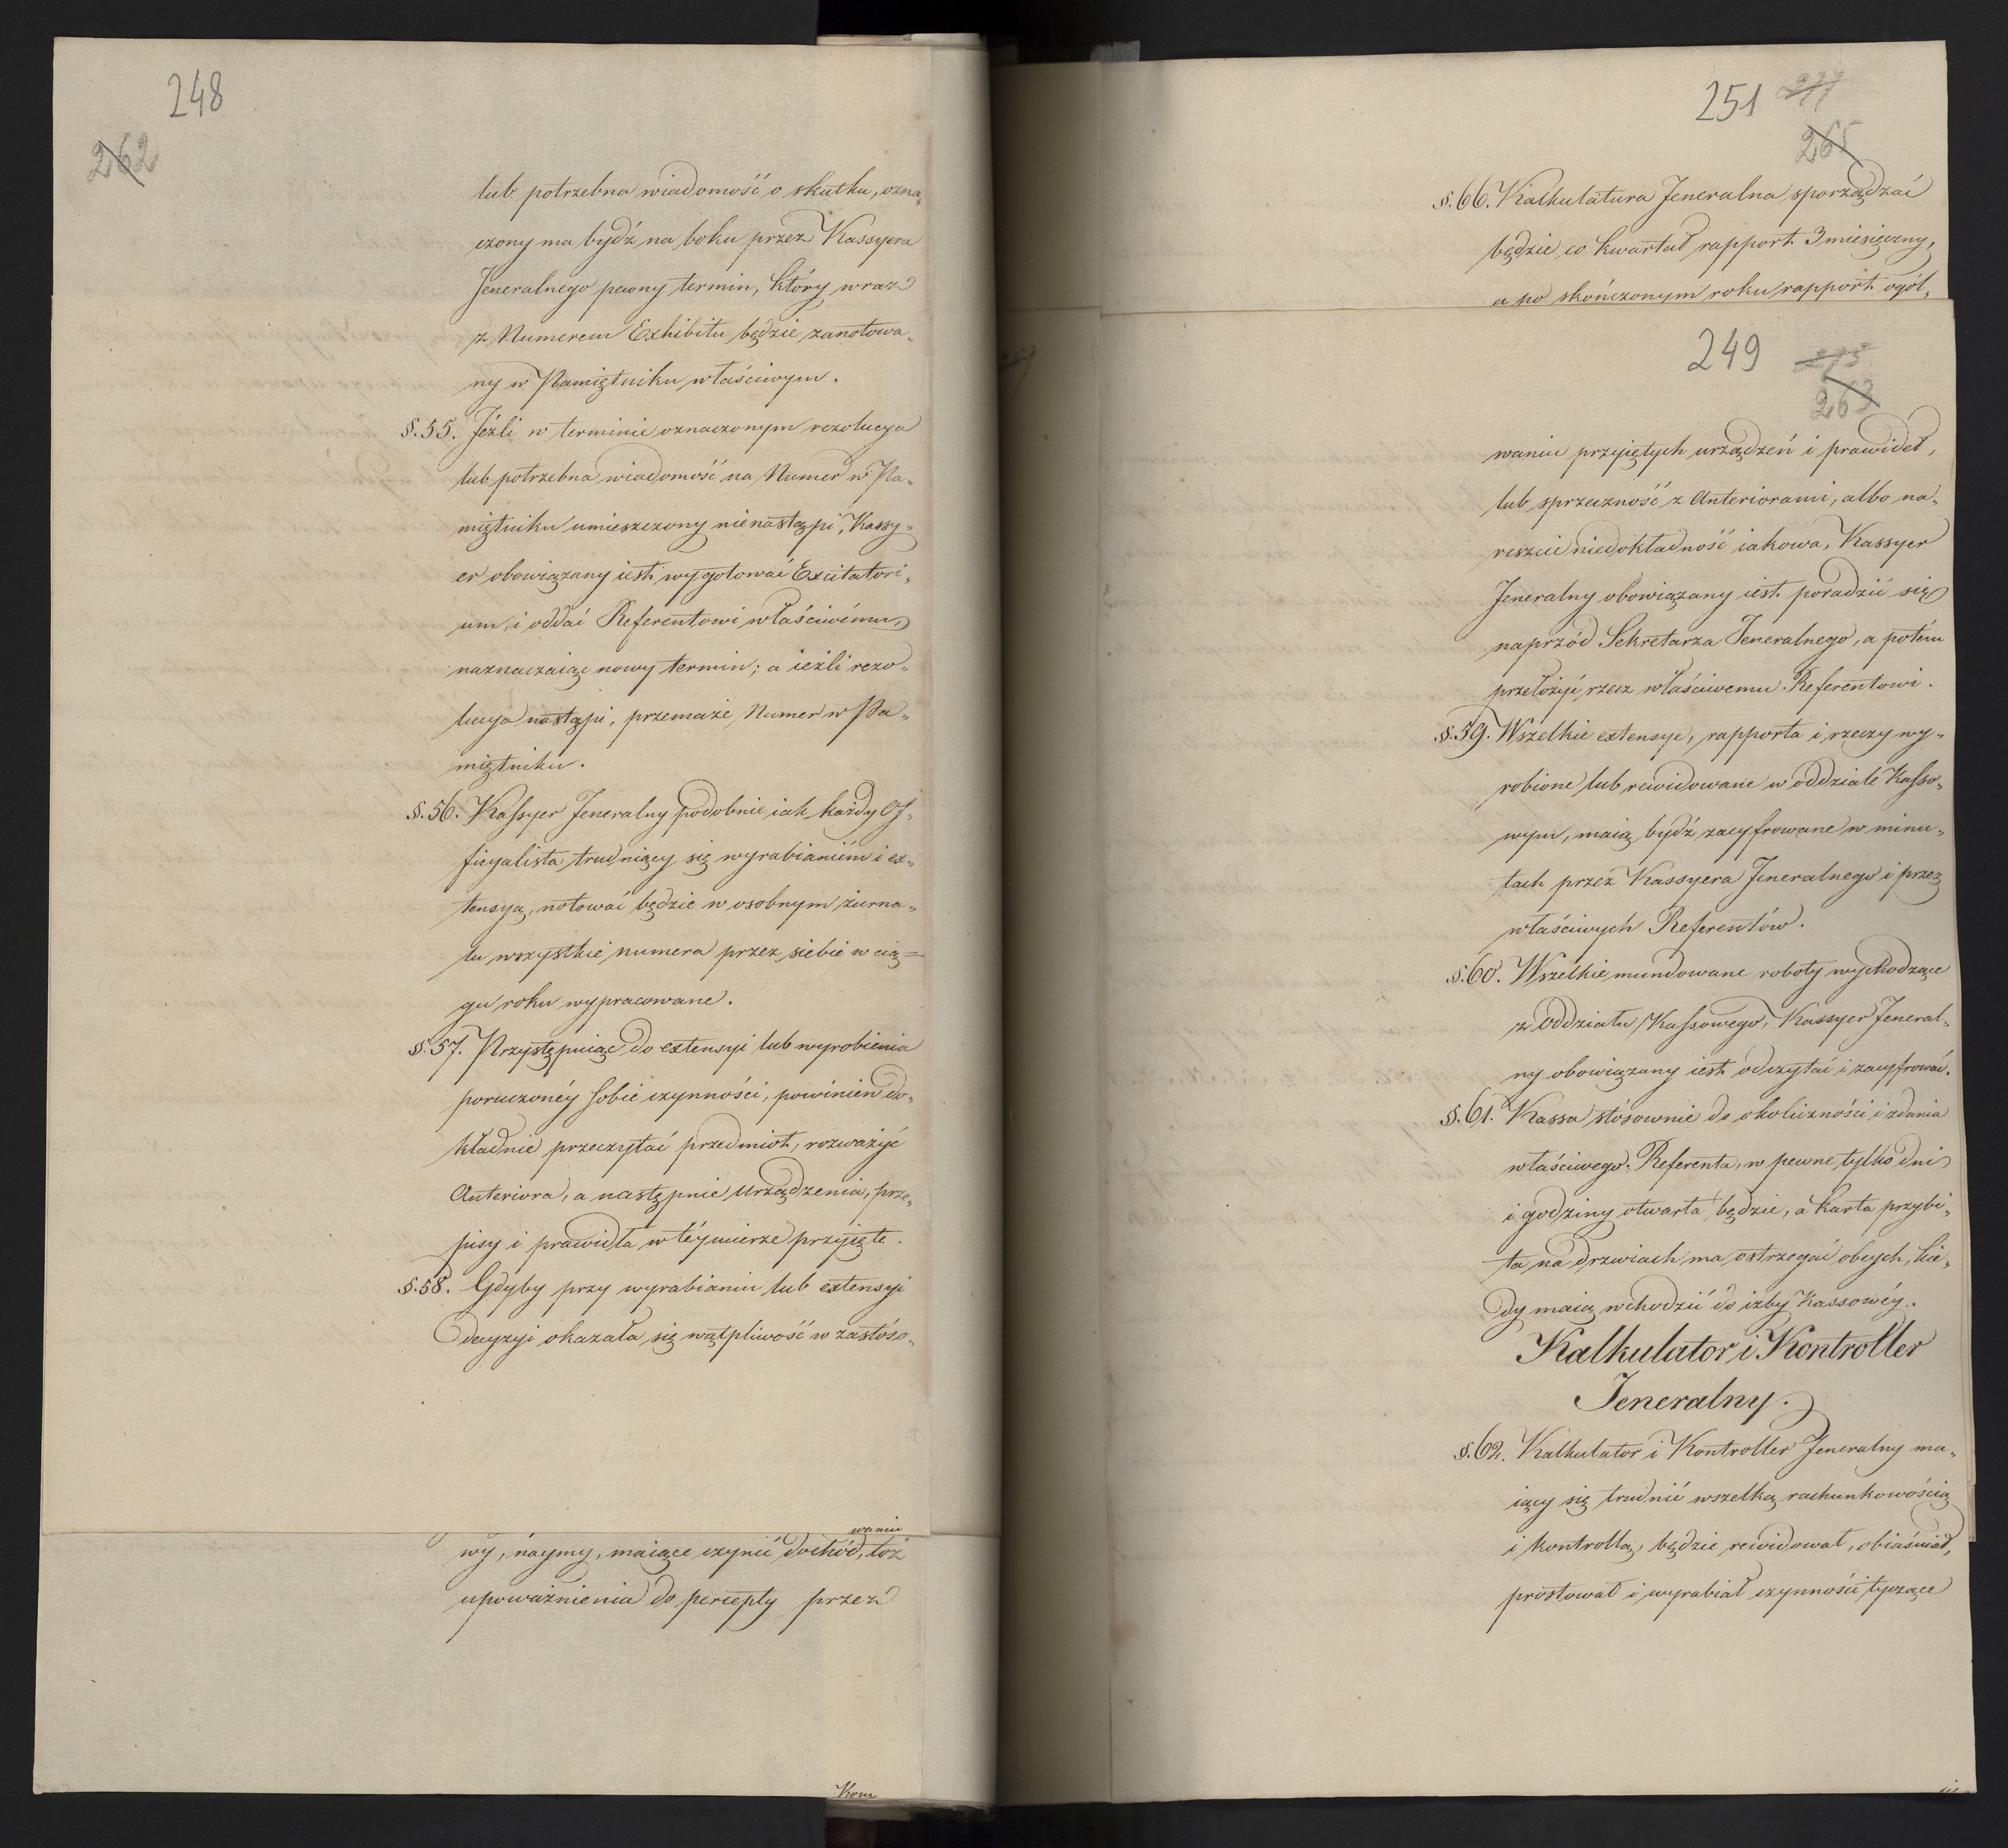 248
262
lub potrzebna wiadomość o skutku, ozna„
czony ma bydź na boku przez Kassyera
Jeneralnego pewny termin, który wraz
z Numerem Exhibitu będzie zanotowa„
ny w Pamiętniku właściwym.
§.55. Jeźli w terminie oznaczonym rezolucya
lub potrzebna wiadomość na Numer w Pa„
miętniku umieszczony nienastąpi, Kassy„
er obowiązany iest wygotować Excitatori„
um, i oddać Referentowi właściwému,
naznaczaiąc nowy termin; a ieźli rezo„
lucya nastąpi, przemaże Numer w Pa„
miętniku.
§.56. Kassyer Jeneralny podobnie iak każdy Of„
ficyalista trudniący się wyrabianiém i ex„
tensyą, notować będzie w osobnym żurna„
lu wszystkie numera przez siebie w cią=
gu roku wypracowane.
§.57. Przystępuiąc do extensyi lub wyrobienia
poruczonéy sobie czynności, powinien do„
kładnie przeczytać przedmiot, rozważyć
Anteriora, a następnie urządzenia, prze„
pisy i prawidła w téymierze przyięte.
§.58. Gdyby przy wyrabianiu lub extensyi
decyzyi okazała się wątpliwość w zastóso„
waniu
wy, naymy, maiące czynić dochód, toż
upoważnienia do percepty przez
Kom
251
265
§.66. Kalkulatura Jeneralna sporządzać
będzie co kwartał rapport 3 miesięczny,
a po skończonym roku rapport ogól„
249
263
waniu przyiętych urządzeń i prawideł,
lub sprzeczność z Anteriorami, albo na„
reszcie niedokładność iakowa, Kassyer
Jeneralny obowiązany iest poradzić się
naprzód Sekretarza Jeneralnego, a potém
przełożyć rzecz właściwemu Referentowi.
§.59. Wszelkie extensye, rapporta i rzeczy wy„
robione lub rewidowane w oddziale Kasso„
wym, maią bydź zacyfrowane w minu„
tach przez Kassyera Jeneralnego i przez
właściwych Referentów.
§.60. Wszelkie mundowane roboty wychodzące
z Oddziału Kassowego, Kassyer Jeneral„
ny obowiązany iest odczytać i zacyfrować.
§.61. Kassa stósownie do okoliczności i zdania
właściwego Referenta, w pewne tylko dni
i godziny otwarta będzie, a karta przybi„
ta na drzwiach ma ostrzegać obcych, kie„
dy maią wchodzić do izby Kassowéy.
Kalkulator i Kontroller
Jeneralny.
§.62. Kalkulator i Kontroller Jeneralny ma„
iący się trudnić wszelką rachunkowością
i kontrollą, będzie rewidował, obiaśniał,
prostował i wyrabiał czynności tyczące